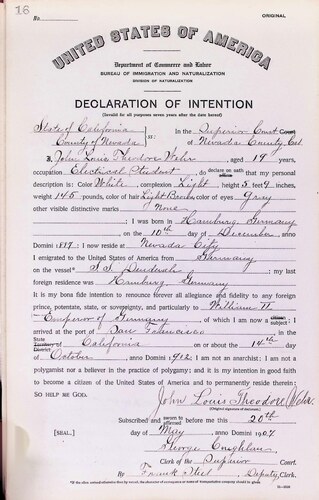 16
No.
ORIGINAL
UNITED STATES OF AMERICA
Department of Commerce and Labor
BUREAU OF IMMIGRATION AND NATURALIZATION
DIVISION OF NATURALIZATION
DECLARATION OF INTENTION
(Invalid for all purposes seven years after the date hereof)
State of California In the Superior Court Court
County of Nevada ss: of Nevada County, Cal
I, John Louis Theodore Weber, aged 19 years,
occupation Electrical Student, do declare on oath that my personal
description is: Color White, complexion Light, height 5 feet 9 inches,
weight 145 pounds, color of hair Light Brown color of eyes Gray
other visible distinctive marks None
I was born in Hamburg, Germany
on the 10th day of December, anno
Domini; I now reside at Nevada City
I emigrated to the United States of America from Germany
on the vessel S.S.; my last
foreign residence was Hamburg, Germany
It is my bona fide intention to renounce forever all allegiance and fidelity to any foreign
prince, potentate, state, or sovereignty, and particularly to William II
Emperor of Germany, of which I am now a subject; I
arrived at the port of San Francisco, in the
State District of California on or about the 14th day
of October, anno Domini; I am not an anarchist; I am not a
polygamist nor a believer in the practice of polygamy; and it is my intention in good faith
to become a citizen of the United States of America and to permanently reside therein:
SO HELP ME GOD.
John Louis Theodore Weber
(Original signature of declarant.)
Subscribed and sworn to before me this 20th
[SEAL] day of May, anno Domini 1907
George Coughlan
Clerk of the Superior Court.
By Deputy Clerk.